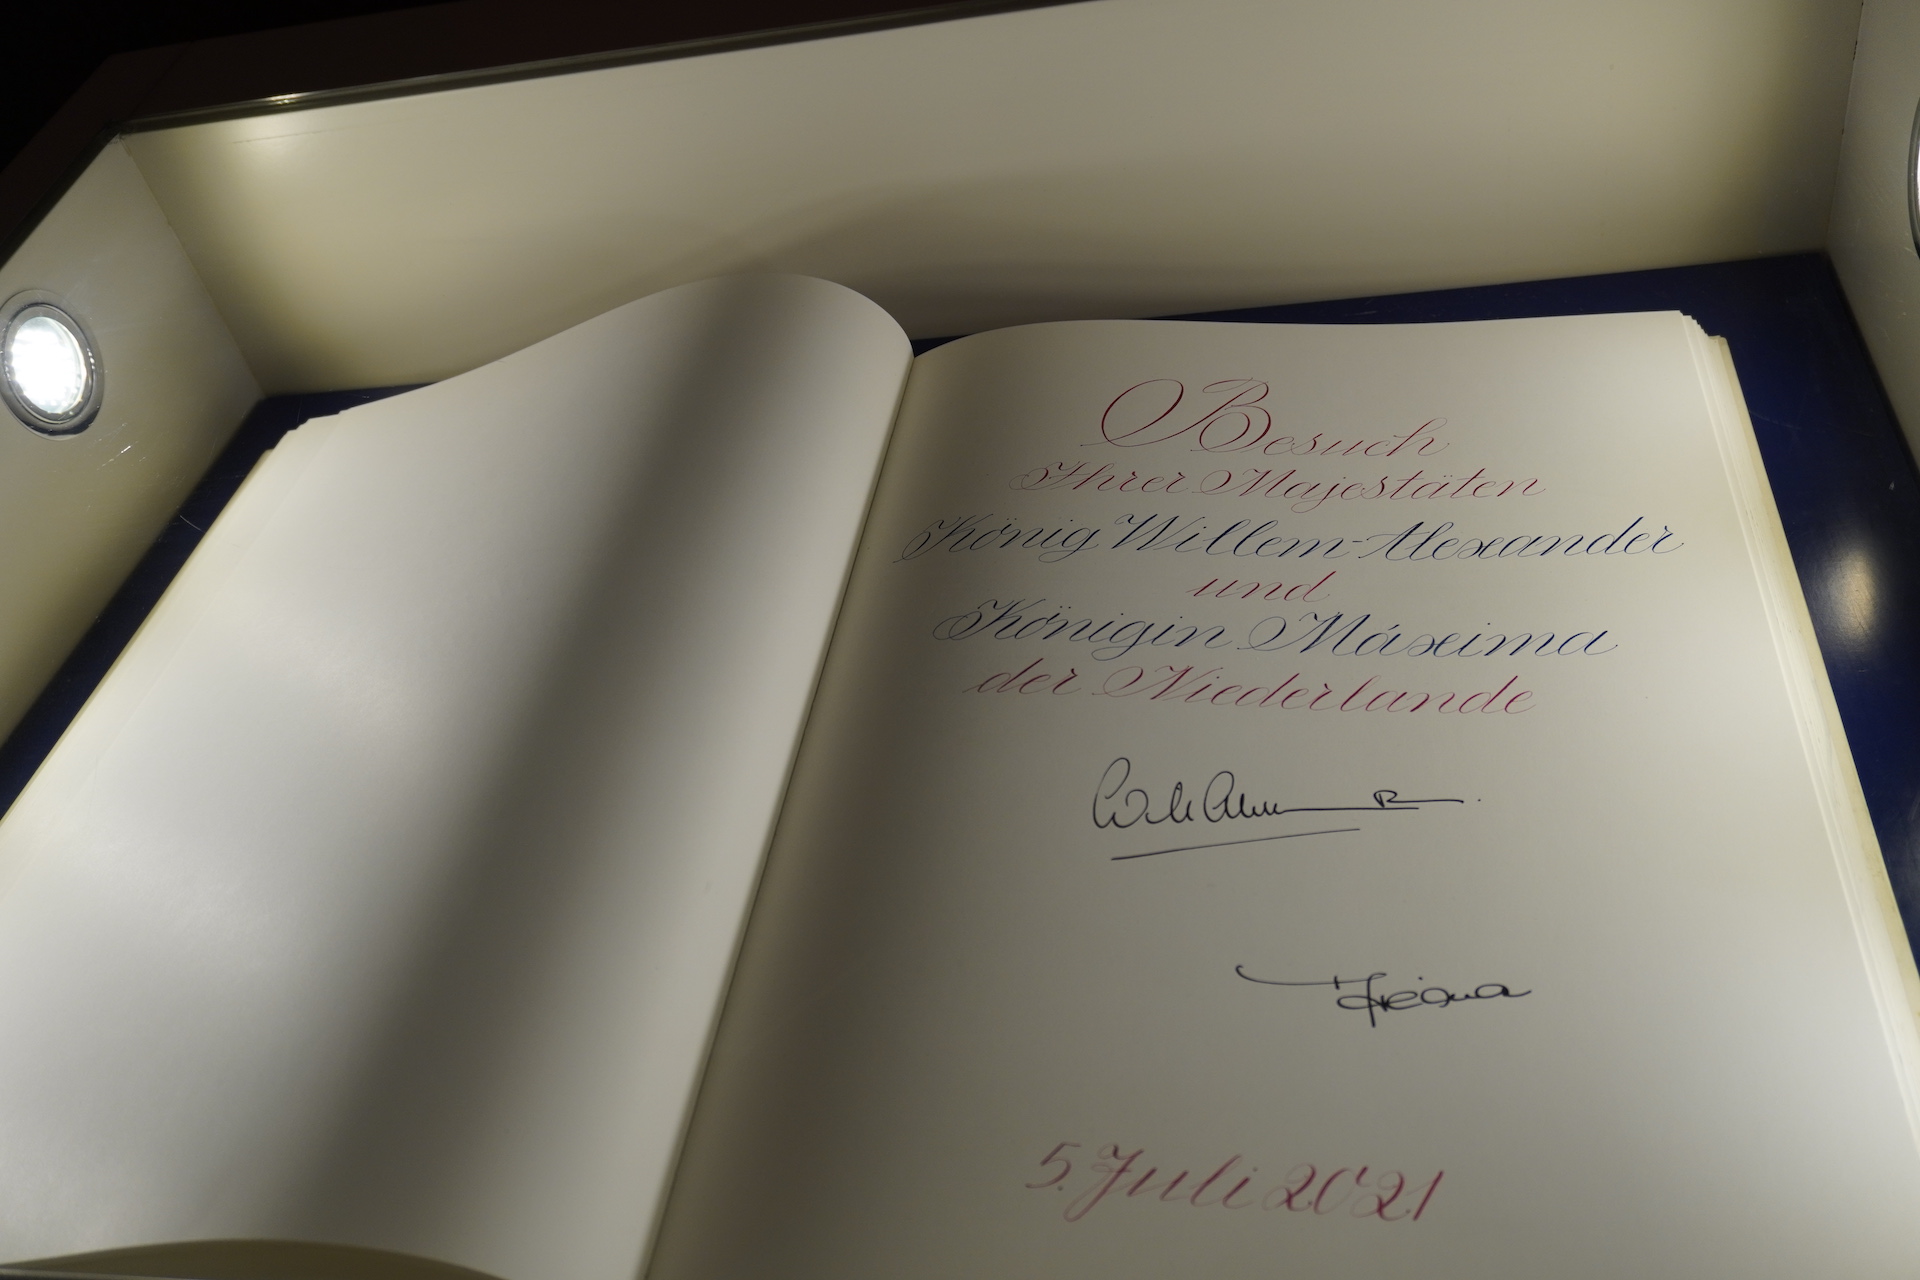 Besuch
Ihrer Majestäten
König Willem-Alexander
und
Königin Máxima
der Niederlande
5. Juli 2021